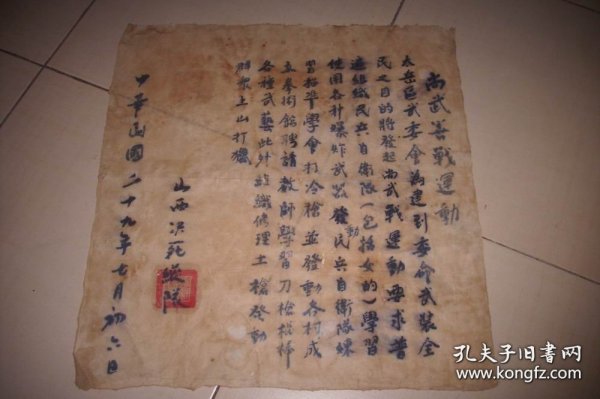 尚武善戰運動
太岳区武委會為達到全面武裝全
民之目的將發起尚武戰運動要求普
遍組織民兵自衛隊（包括女的）學習
使用各种爆炸武器發動民兵自衛隊練
習招準學會打冷槍並發動各村成
立拳術館聘請教師學習刀槍棍棒
各種武藝此外組織修理土槍發動
群衆上山打獵
山西决死縱隊
中華民國二十九年七月初六日
孔夫子旧书网
www.kongfz.com